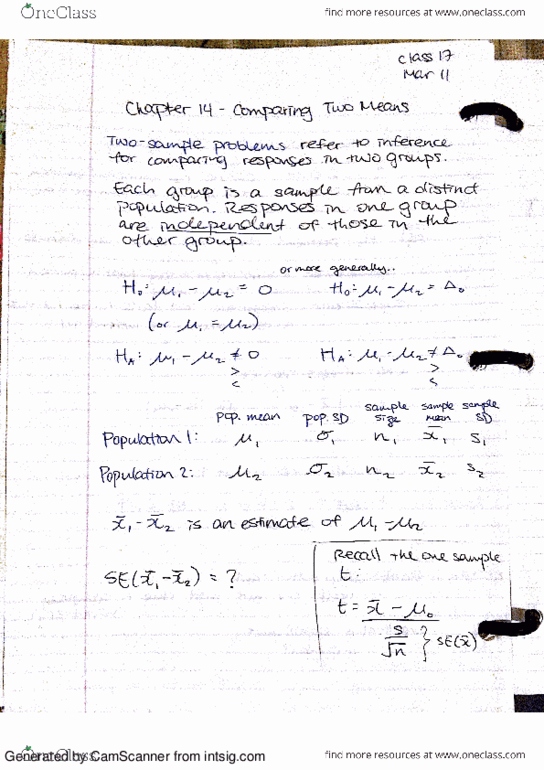 OneClass
find more resources at www.oneclass.com
class 17
Mar 11
Chapter 14 - Comparing Two Means
Two-sample problems refer to inference
for comparing responses in two groups.
Each group is a sample from a distinct
population. Responses in one group
are independent of those in the
other group.
or more generally..
H₀: μ₁ - μ₂ = 0 H₀: μ₁ - μ₂ = Δ₀
(or μ₁ = μ₂)
H_A: μ₁ - μ₂ ≠ 0 H_A: μ₁ - μ₂ ≠ Δ₀
> >
< <
pop. mean pop. SD sample size sample mean sample SD
Population 1: μ₁ σ₁ n₁ x̄₁ s₁
Population 2: μ₂ σ₂ n₂ x̄₂ s₂
x̄₁ - x̄₂ is an estimate of μ₁ - μ₂
SE(x̄₁ - x̄₂) = ?
Recall the one sample
t:
t = x̄ - μ₀
s
√n } SE(x̄)
OneClass
Generated by CamScanner from intsig.com
find more resources at www.oneclass.com